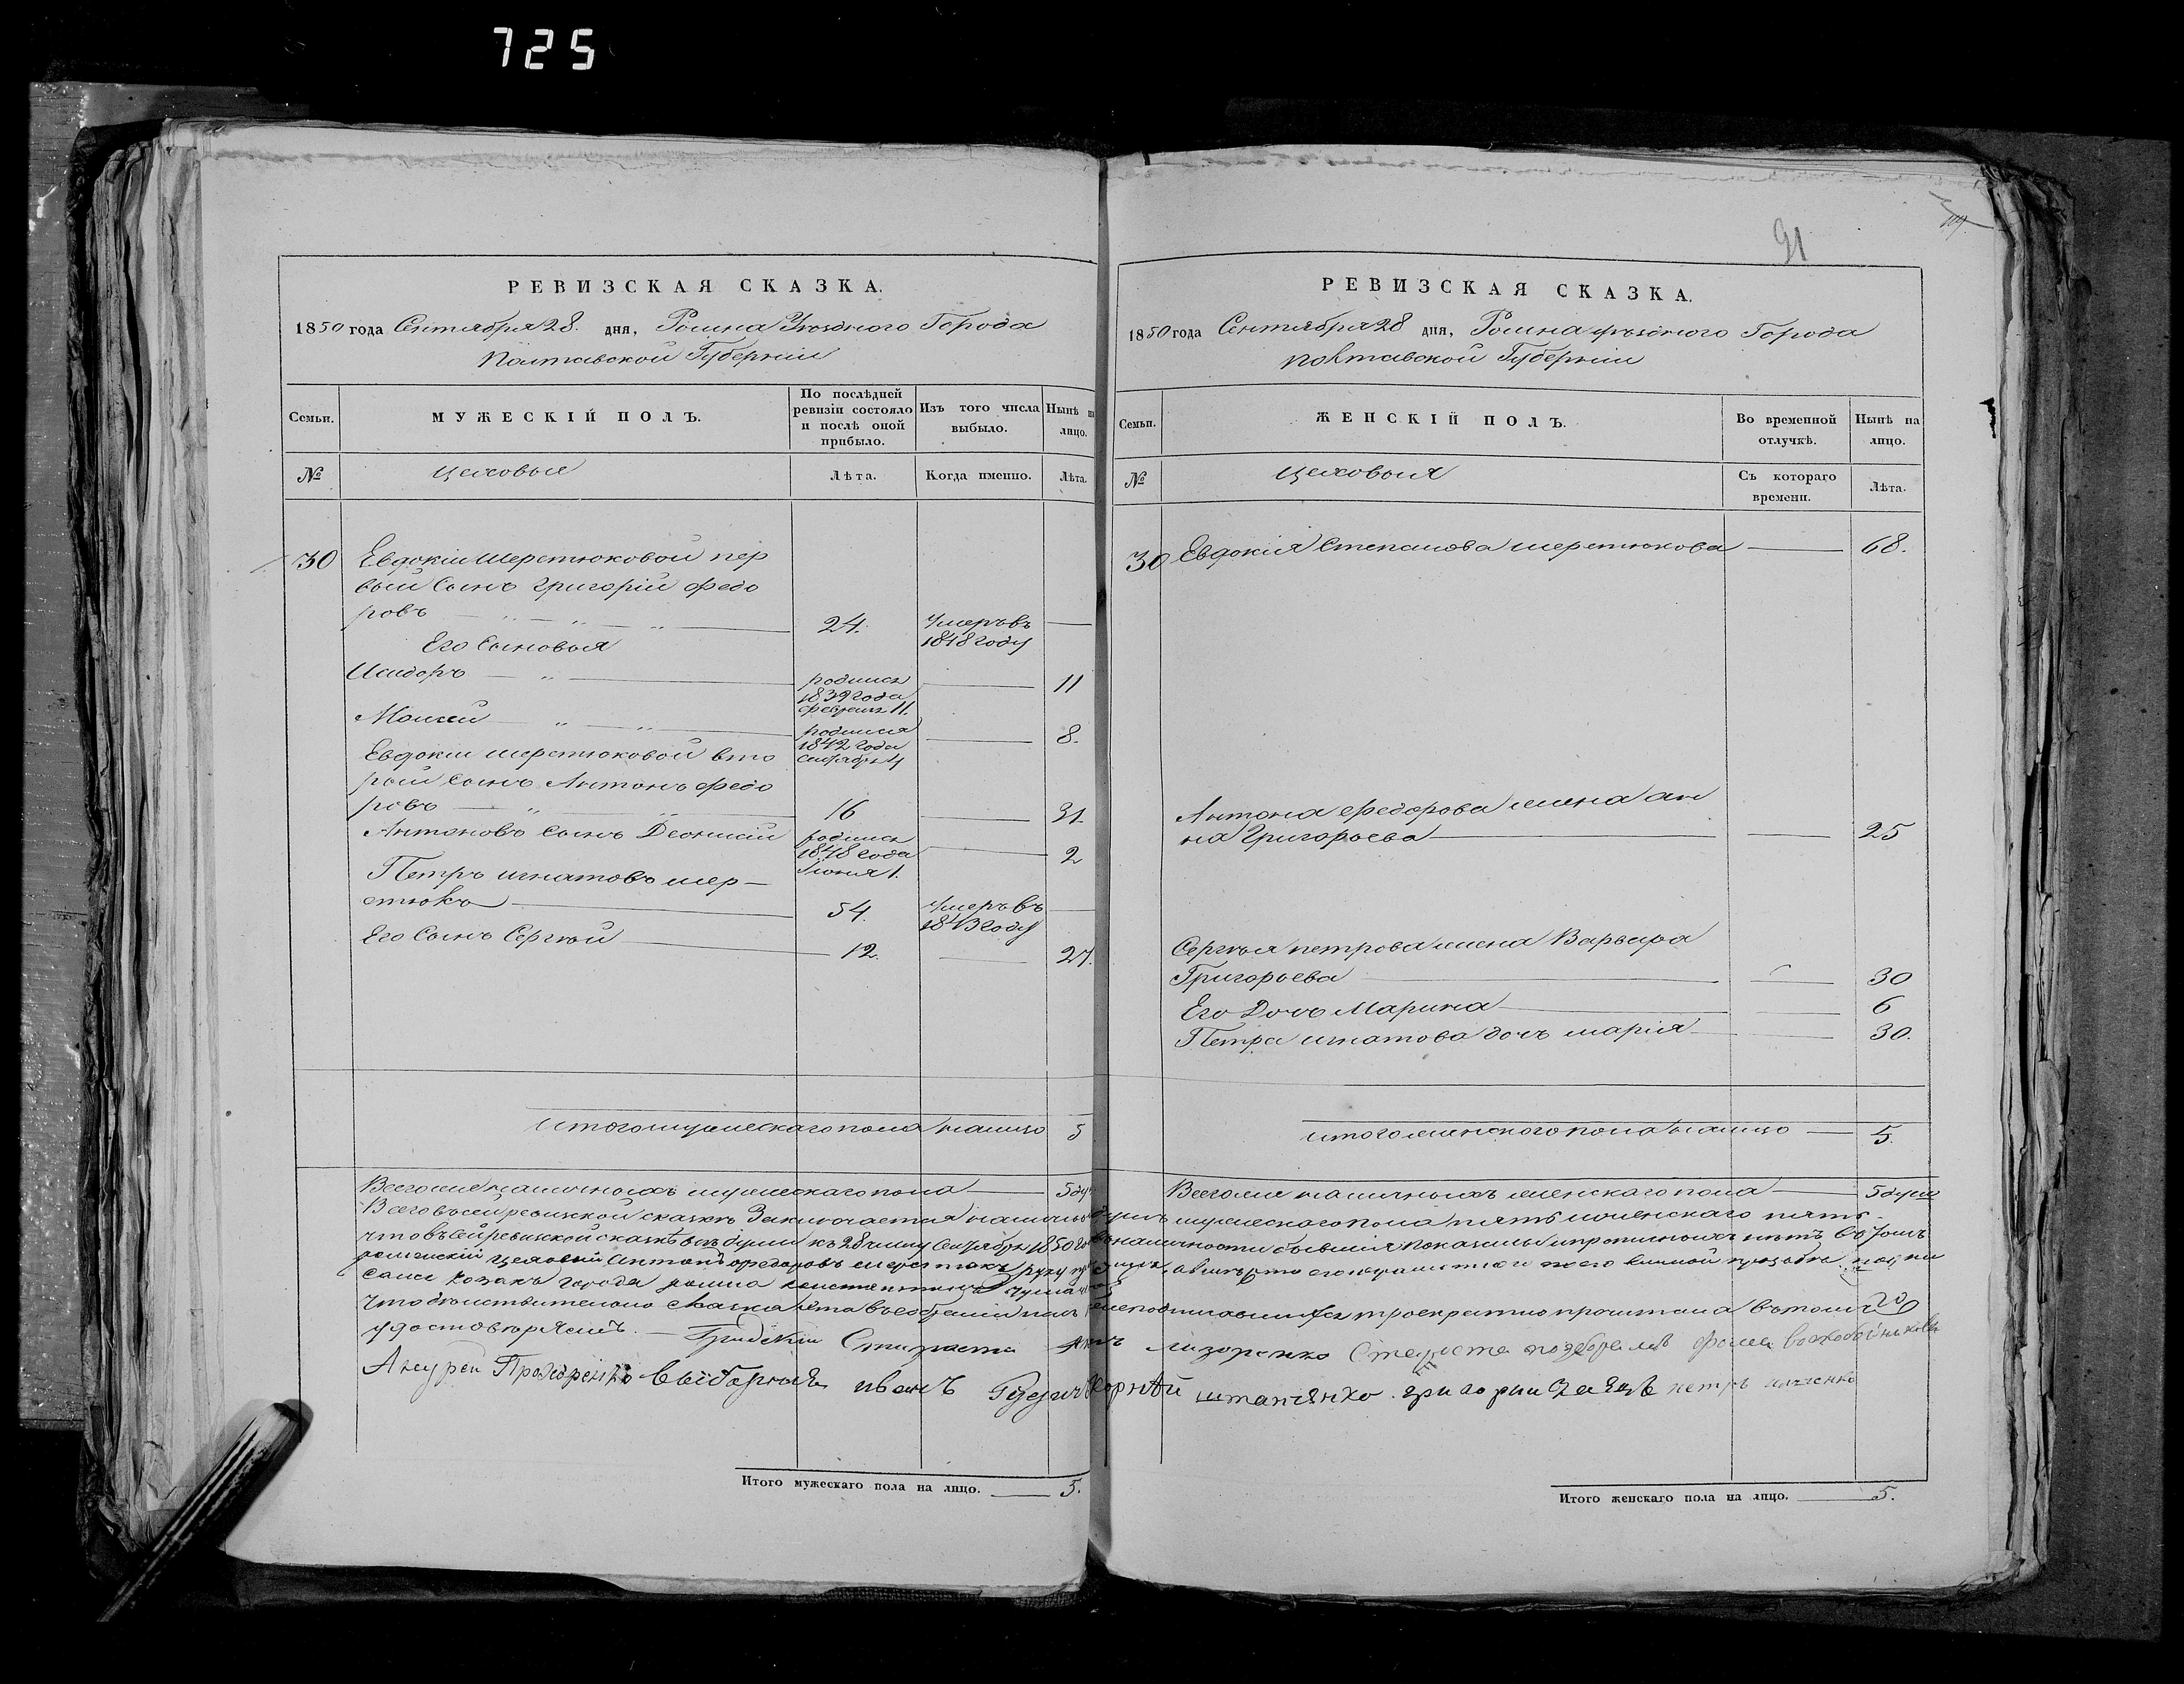 725
РЕВИЗСКАЯ СКАЗКА.
1850 года Сентября 28. дня, Ромна Уѣзднаго Города
Полтавской Губерніи
Семьи.
МУЖЕСКІЙ ПОЛЪ.
По послѣдней ревизіи состояло и послѣ оной прибыло.
Изъ того числа выбыло.
Нынѣ на лицо.
№
Цеховыя
Лѣта.
Когда именно.
Лѣта.
30 Евдокіи Шерстюковой пер
вый Сынъ Григорій Федо
ровъ 24. Умеръ въ 1848 году
Его Сыновья
Исидоръ родился 1839 года февраля 11. 11
Моисей родился 1842 года Сентября 4 8.
Евдокіи шерстюковой вто
рой Сынъ Антонъ Федо
ровъ 16 31.
Антоновъ сынъ Деонисій родился 1848 года Іюня 1. 2
Петръ игнатовъ шер-
стюкъ 54. Умеръ въ 1843 году
Его Сынъ Сергѣй 12. 27.
итого мужескаго пола налицо 5
Всего же наличныхъ мужескаго пола 5 ду
Итого мужескаго пола на лицо. 5.
91
РЕВИЗСКАЯ СКАЗКА.
1850 года Сентября 28 дня, Ромна уѣзднаго Города
Полтавской Губерніи
Семьи.
ЖЕНСКІЙ ПОЛЪ.
Во временной отлучкѣ.
Нынѣ на лицо.
№
Цеховыя
Съ котораго времени.
Лѣта.
30 Евдокія Степанова шерстюкова 68.
Антона Федорова жена ан
на Григорьева 25
Сергѣя петрова жена Варвара
Григорьева 30
Его Дочь Марина 6
Петра игнатова дочь марія 30.
итого женскаго пола налицо 5.
Всего же наличныхъ женскаго пола 5 душъ
Всего въ сей ревизской сказкѣ Заключается наличныхъ душъ мужескаго пола пять и женскаго пять
что въ сей ревизской сказкѣ всѣ души къ 28 числу Сентября 1850 го въ наличности бывшія показаны и прописныхъ нѣтъ въ томъ
роменскій цеховый Антонъ Федоровъ шерстюкъ руку
города ромна
что дѣйствительно Сказка эта въ собраніи троекратно прочитана въ томъ
удостовѣряемъ. Староста Староста
выборныя иванъ Корнѣй григорий Заецъ петръ
Итого женскаго пола на лицо. 5.